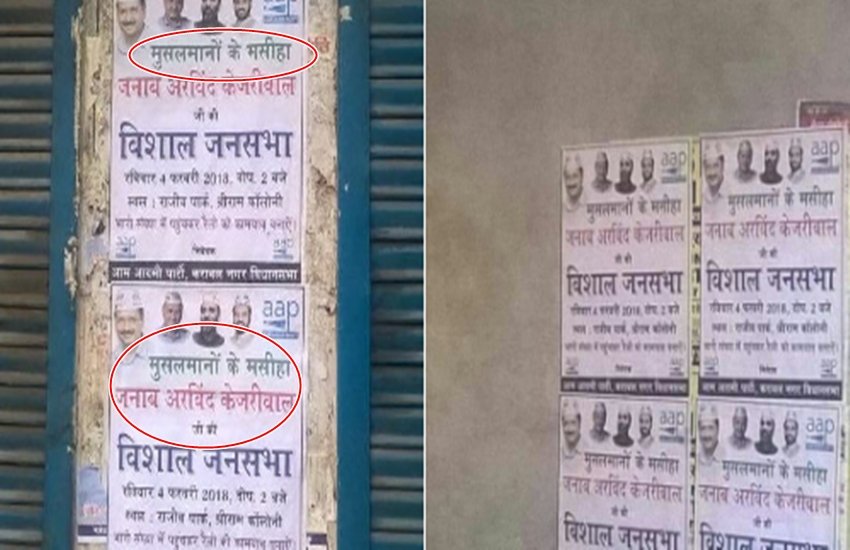 aap
मुसलमानों के मसीहा
जनाब अरविंद केजरीवाल
जी की
विशाल जनसभा
रविवार 4 फरवरी 2018, दोप. 2 बजे
स्थल : राजीव पार्क, श्रीराम कॉलोनी
भारी संख्या में पहुंचकर रैली को कामयाब बनाएं।
aap
निवेदक
aap
आम आदमी पार्टी, करावल नगर विधानसभा
aap
मुसलमानों के मसीहा
जनाब अरविंद केजरीवाल
जी की
विशाल जनसभा
रविवार 4 फरवरी 2018, दोप. 2 बजे
स्थल : राजीव पार्क, श्रीराम कॉलोनी
भारी संख्या में पहुंचकर रैली को कामयाब बनाएं।
aap
मुसलमानों के मसीहा
जनाब अरविंद केजरीवाल
जी की
विशाल जनसभा
रविवार 4 फरवरी 2018, दोप. 2 बजे
स्थल : राजीव पार्क, श्रीराम कॉलोनी
भारी संख्या में पहुंचकर रैली को कामयाब बनाएं।
निवेदक
आम आदमी पार्टी, करावल नगर विधानसभा
aap
मुसलमानों के मसीहा
जनाब अरविंद केजरीवाल
जी की
विशाल जनसभा
रविवार 4 फरवरी 2018, दोप. 2 बजे
स्थल : राजीव पार्क, श्रीराम कॉलोनी
भारी संख्या में पहुंचकर रैली को कामयाब बनाएं।
निवेदक
आम आदमी पार्टी, करावल नगर विधानसभा
aap
मुसलमानों के मसीहा
जनाब अरविंद केजरीवाल
जी की
विशाल जनसभा
aap
मुसलमानों के मसीहा
जनाब अरविंद केजरीवाल
जी की
विशाल जनसभा